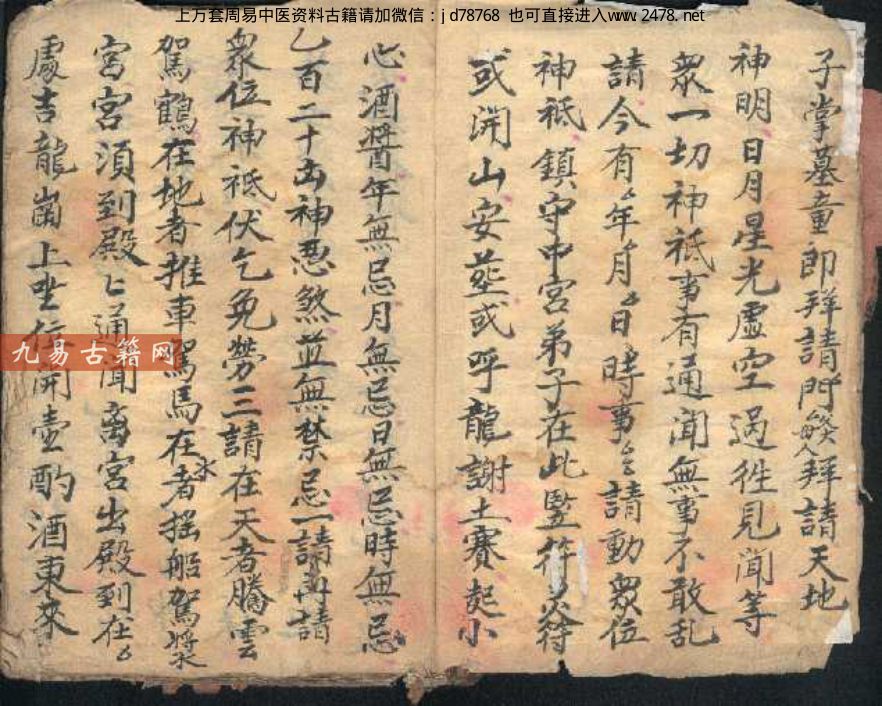 上万套周易中医资料古籍请加微信：jd78768 也可直接进入www.2478.net
子掌墓童郎拜請門 拜請天地
神明日月星光虛空過徃見聞等
衆一切神祇事有通聞無事不敢乱
請今有〻年〻月〻日時事〻請動眾位
神祇鎮守中宮弟子在此竪符 符
或開山安茔或呼龍謝土賽起小
心酒醬年無忌月無忌日無忌時無忌
乙百二十 神 煞並無禁忌一請再請
衆位神祗伏乞免勞三請在天者騰雲
駕鶴在地者推車駕馬在水者摇船駕槳
宮宮湏到殿〻通聞离宮出殿到在〻
處吉龍崗上坐位開壺酌酒東來
九易古籍网